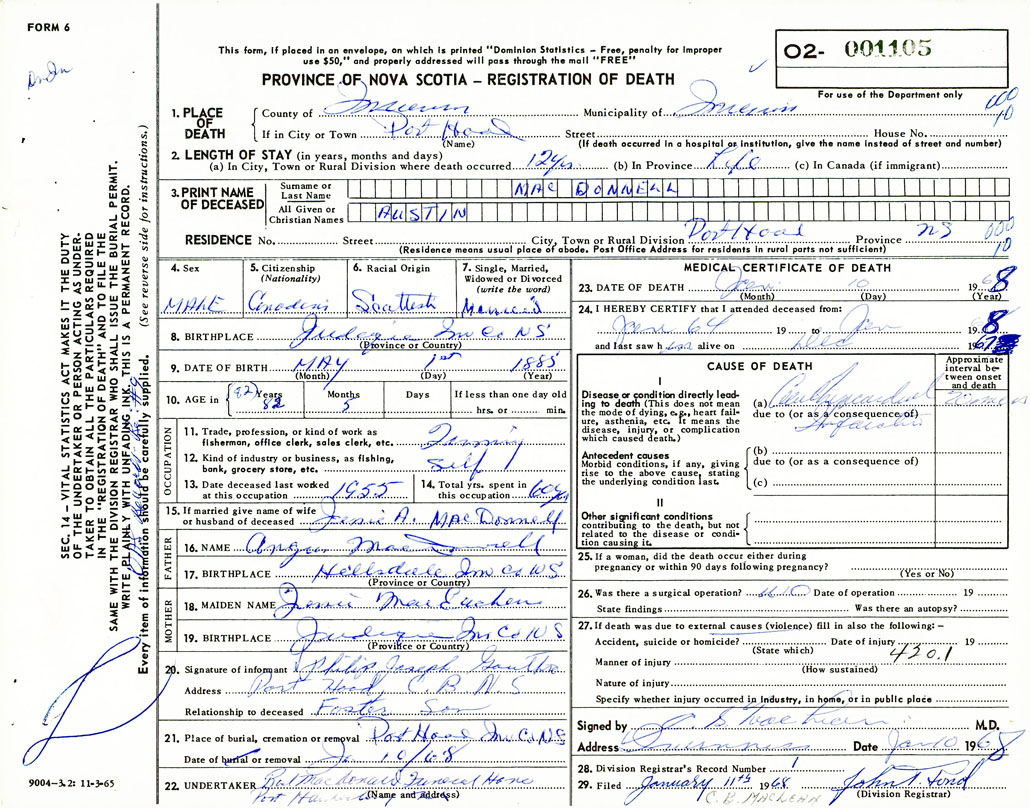 FORM 6
This form, if placed in an envelope, on which is printed "Dominion Statistics – Free, penalty for improper
use $50," and properly addressed will pass through the mail "FREE"
O2- 001105
PROVINCE OF NOVA SCOTIA – REGISTRATION OF DEATH
For use of the Department only
000
10
1. PLACE OF DEATH County of Inverness Municipality of Inverness
If in City or Town Port Hood Street House No.
(Name) (If death occurred in a hospital or institution, give the name instead of street and number)
2. LENGTH OF STAY (in years, months and days)
(a) In City, Town or Rural Division where death occurred 12 yrs. (b) In Province Life (c) In Canada (if immigrant)
3. PRINT NAME OF DECEASED
Surname or Last Name MAC DONNELL
All Given or Christian Names AUSTIN
RESIDENCE No. Street City, Town or Rural Division Port Hood Province NS
000
10
(Residence means usual place of abode. Post Office Address for residents in rural parts not sufficient)
SEC. 14 – VITAL STATISTICS ACT MAKES IT THE DUTY
OF THE UNDERTAKER OR PERSON ACTING AS UNDER-
TAKER TO OBTAIN ALL THE PARTICULARS REQUIRED
IN THE "REGISTRATION OF DEATH" AND TO FILE THE
SAME WITH THE DIVISION REGISTRAR WHO SHALL ISSUE THE BURIAL PERMIT.
WRITE PLAINLY WITH UNFADING INK. THIS IS A PERMANENT RECORD.
Every item of information should be carefully supplied. (See reverse side for instructions.)
4. Sex MALE
5. Citizenship (Nationality) Canadian
6. Racial Origin Scottish
7. Single, Married, Widowed or Divorced (write the word) Married
8. BIRTHPLACE Judique Inv Co NS
(Province or Country)
9. DATE OF BIRTH MAY 1st 1885
(Month) (Day) (Year)
10. AGE in 82 Years 82 Months 5 Days If less than one day old
hrs. or min.
OCCUPATION
11. Trade, profession, or kind of work as
fisherman, office clerk, sales clerk, etc. Farming
12. Kind of industry or business, as fishing,
bank, grocery store, etc. Self
13. Date deceased last worked at this occupation 1955 14. Total yrs. spent in this occupation 60 yrs
15. If married give name of wife
or husband of deceased Jessie A. MacDonnell
FATHER
16. NAME Angus MacDonnell
17. BIRTHPLACE Hillsdale Inv Co NS
(Province or Country)
MOTHER
18. MAIDEN NAME Jessie MacEachern
19. BIRTHPLACE Judique Inv Co NS
(Province or Country)
20. Signature of informant Philip Joseph
Address Port Hood, C.B. N S
Relationship to deceased Foster Son
21. Place of burial, cremation or removal Port Hood Inv Co NS
Date of burial or removal 10/68
22. UNDERTAKER MacDonald Funeral Home
Port
(Name and Address)
9004–3.2: 11-3-65
MEDICAL CERTIFICATE OF DEATH
23. DATE OF DEATH Jan 10 1968
(Month) (Day) (Year)
24. I HEREBY CERTIFY that I attended deceased from:
Jan 64 19 to Jan 1968
and last saw him alive on Dec 1967
CAUSE OF DEATH
Approximate interval between onset and death
I
Disease or condition directly leading to death (This does not mean the mode of dying, e.g., heart failure, asthenia, etc. It means the disease, injury, or complication which caused death.)
(a)
due to (or as a consequence of)
Antecedent causes
Morbid conditions, if any, giving rise to the above cause, stating the underlying condition last.
(b)
due to (or as a consequence of)
(c)
II
Other significant conditions
contributing to the death, but not related to the disease or condition causing it.
25. If a woman, did the death occur either during
pregnancy or within 90 days following pregnancy?
(Yes or No)
26. Was there a surgical operation? NO Date of operation 19
State findings Was there an autopsy?
27. If death was due to external causes (violence) fill in also the following: –
Accident, suicide or homicide? Date of injury 19
(State which) 420.1
Manner of injury
(How sustained)
Nature of injury
Specify whether injury occurred in industry, in home, or in public place
Signed by M.D.
Address Inverness Date Jan 10 1968
28. Division Registrar's Record Number 1
29. Filed January 11th 1968 John T. Ford
C. B. MACLEAN (Division Registrar)